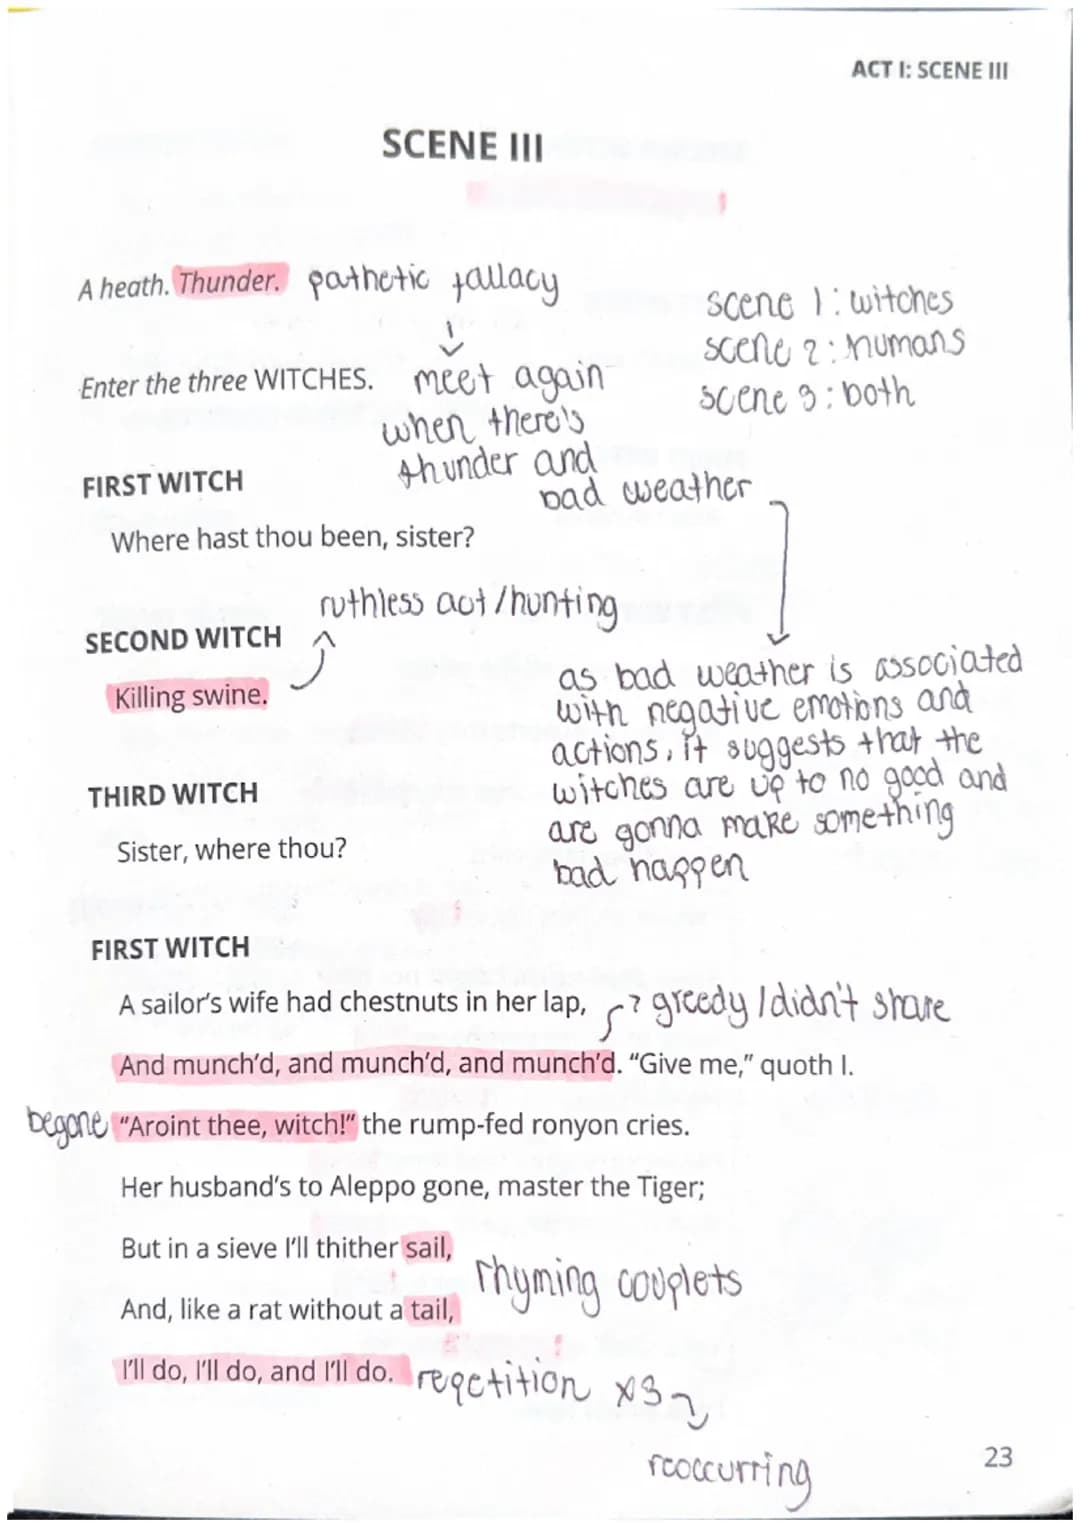 ACT I: SCENE III
SCENE III
A heath. Thunder. pathetic fallacy
scene 1: witches
scene 2: humans
scene 3: both
Enter the three WITCHES.
meet again
when there's
thunder and
bad weather
FIRST WITCH
Where hast thou been, sister?
ruthless act / hunting
SECOND WITCH
Killing swine.
as bad weather is associated
with negative emotions and
actions, it suggests that the
witches are up to no good and
are gonna make something
bad happen
THIRD WITCH
Sister, where thou?
FIRST WITCH
A sailor's wife had chestnuts in her lap,
greedy / didn't share
And munch'd, and munch'd, and munch'd. “Give me,” quoth I.
begone “Aroint thee, witch!” the rump-fed ronyon cries.
Her husband's to Aleppo gone, master the Tiger;
But in a sieve I'll thither sail,
rhyming couplets
And, like a rat without a tail,
I'll do, I'll do, and I'll do. repetition x3
reoccurring
23